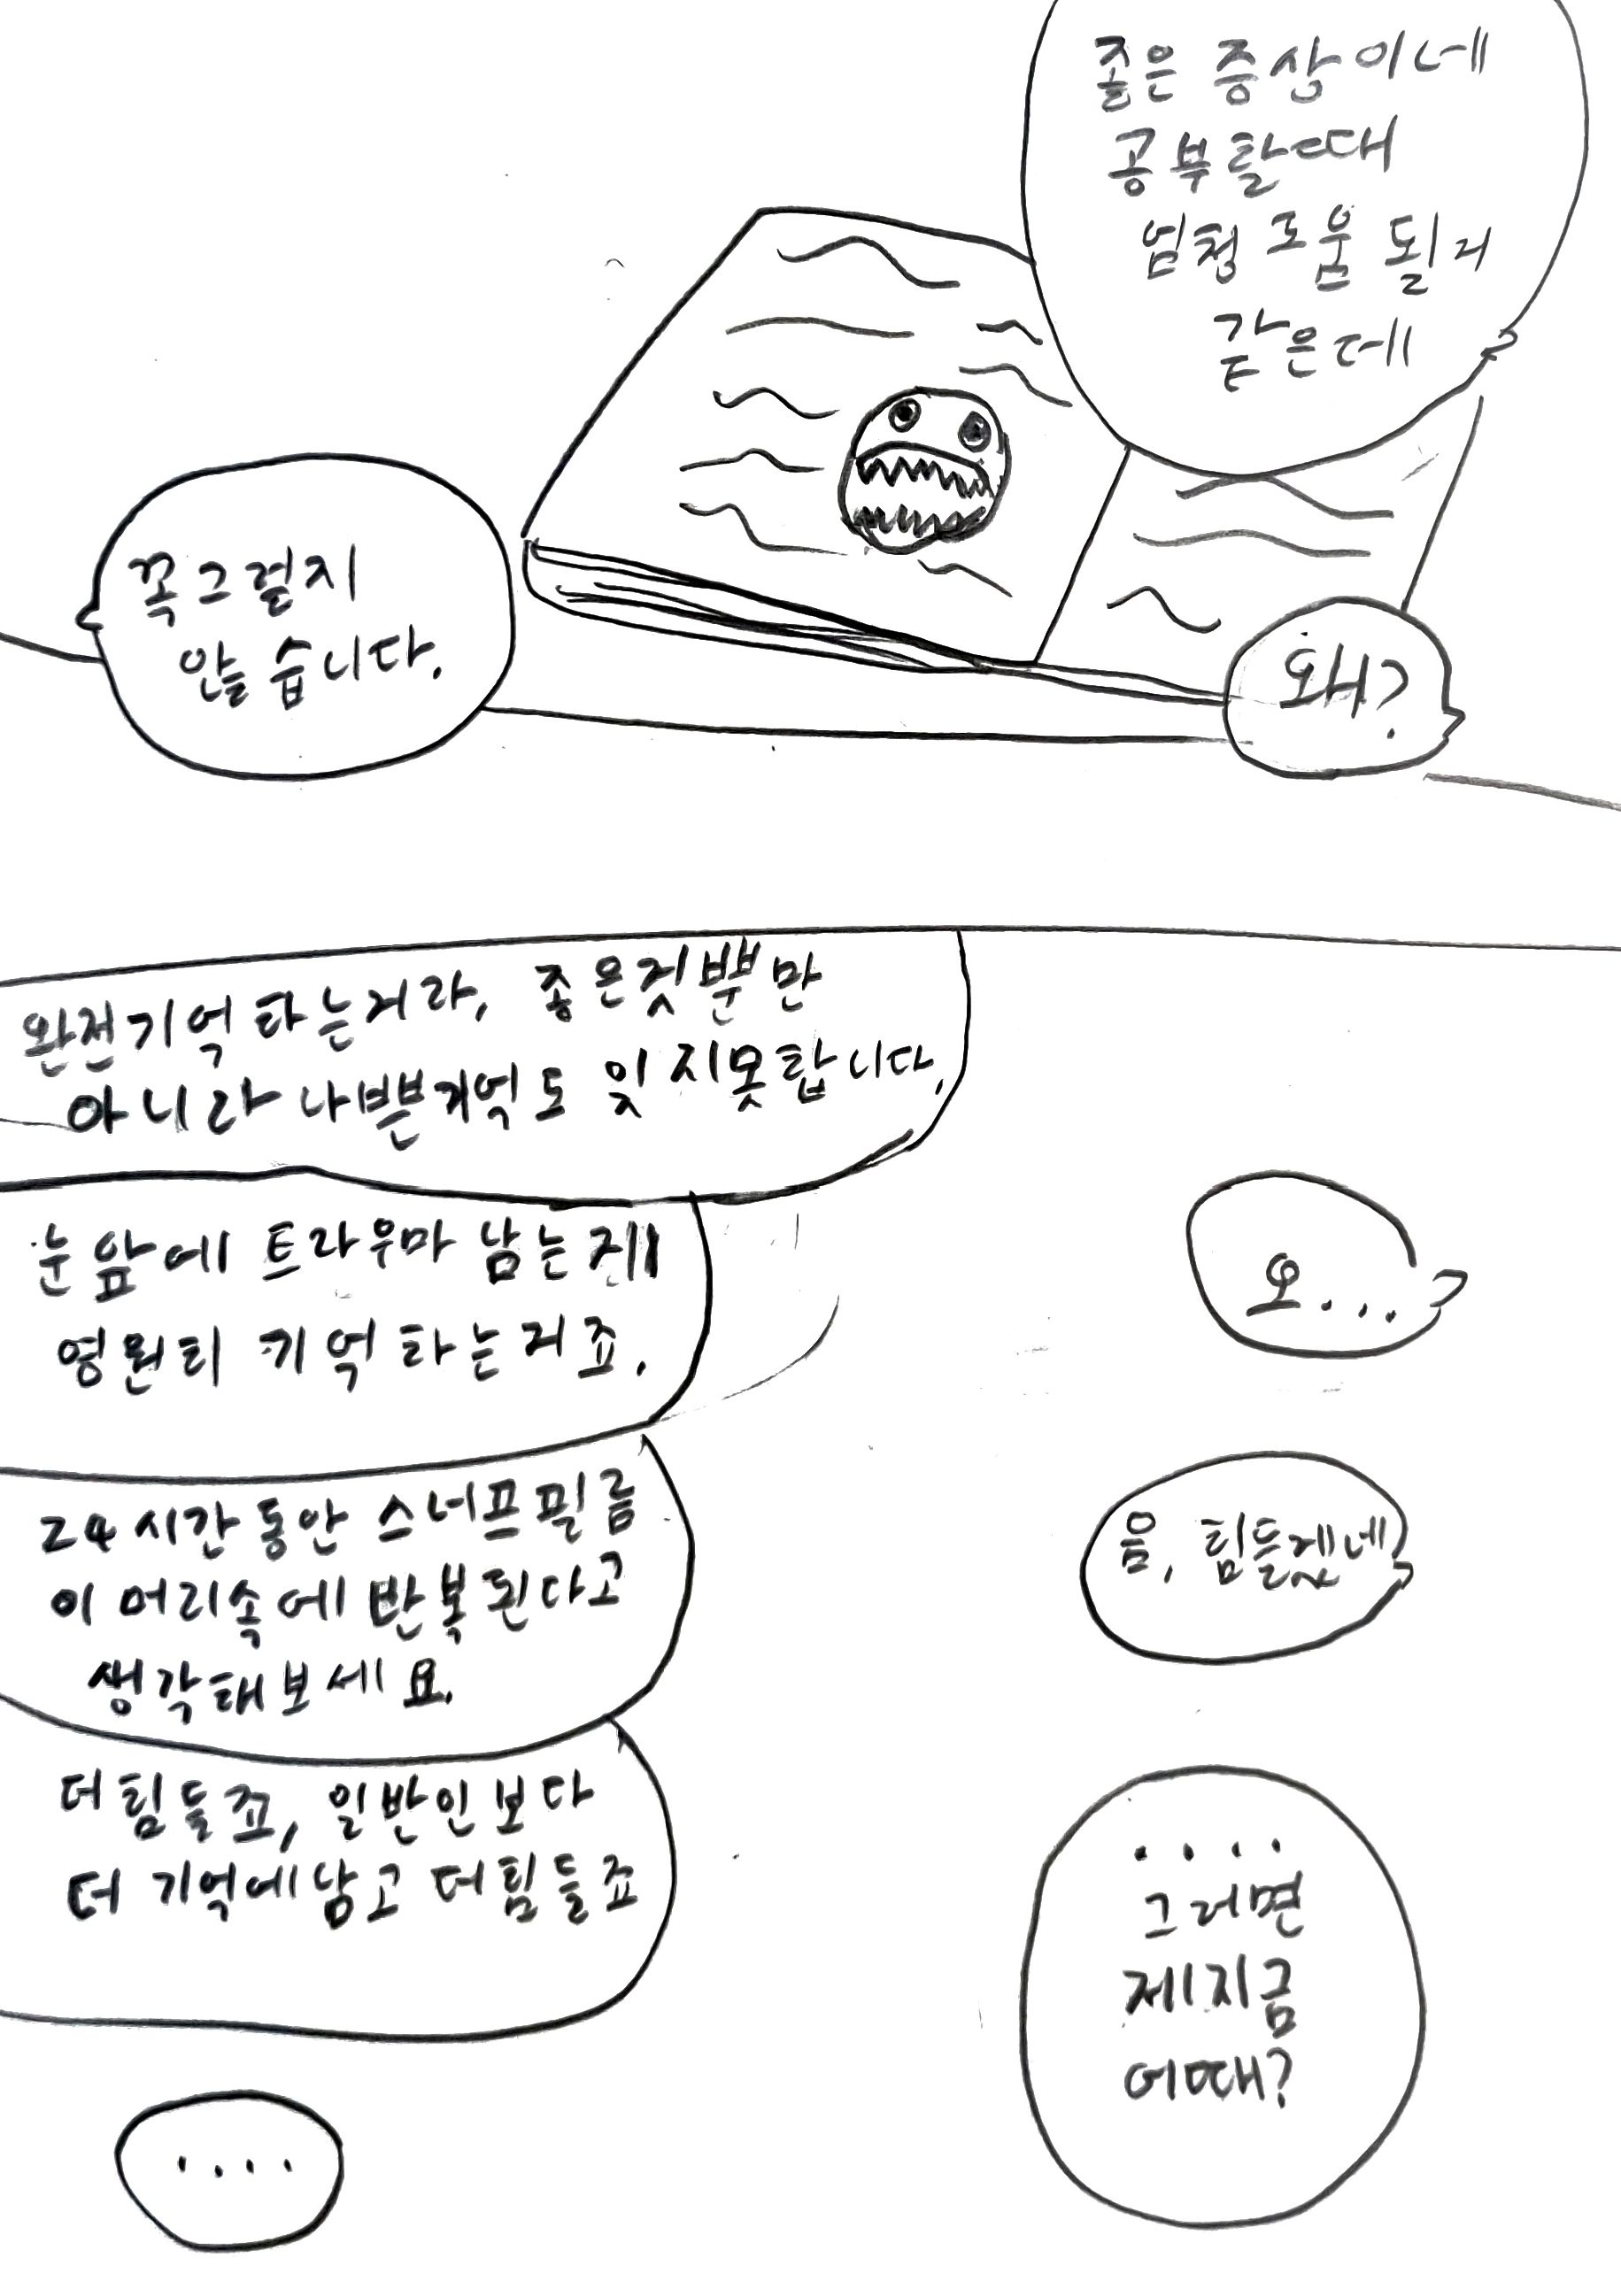 좋은 증상이네
공부할때
엄청 도움 될거
같은데
꼭그렇지
않습니다.
왜?
완전기억하는거라, 좋은것뿐만
아니라 나쁜기억도 잊지못합니다.
눈앞에 트라우마 남는걸
영원히 기억하는거죠.
오...
24시간동안 스너프필름
이 머리속에 반복된다고
생각해보세요.
음, 힘들겠네
더힘들죠, 일반인보다
더 기억에남고 더힘들죠
....
그러면
제지금
어때?
....